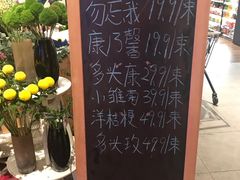 勿忘我19.9/束
康乃馨19.9/束
多头康29.9/束
小雏菊39.9/束
洋桔梗49.9/束
多头玫49.9/束